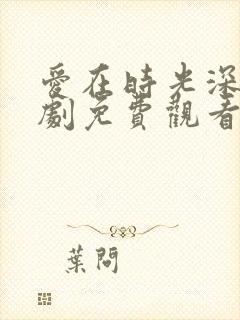 愛在時光深
劇免費觀看
葉問